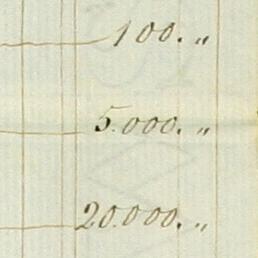 100. „
5.000. „
20.000. „